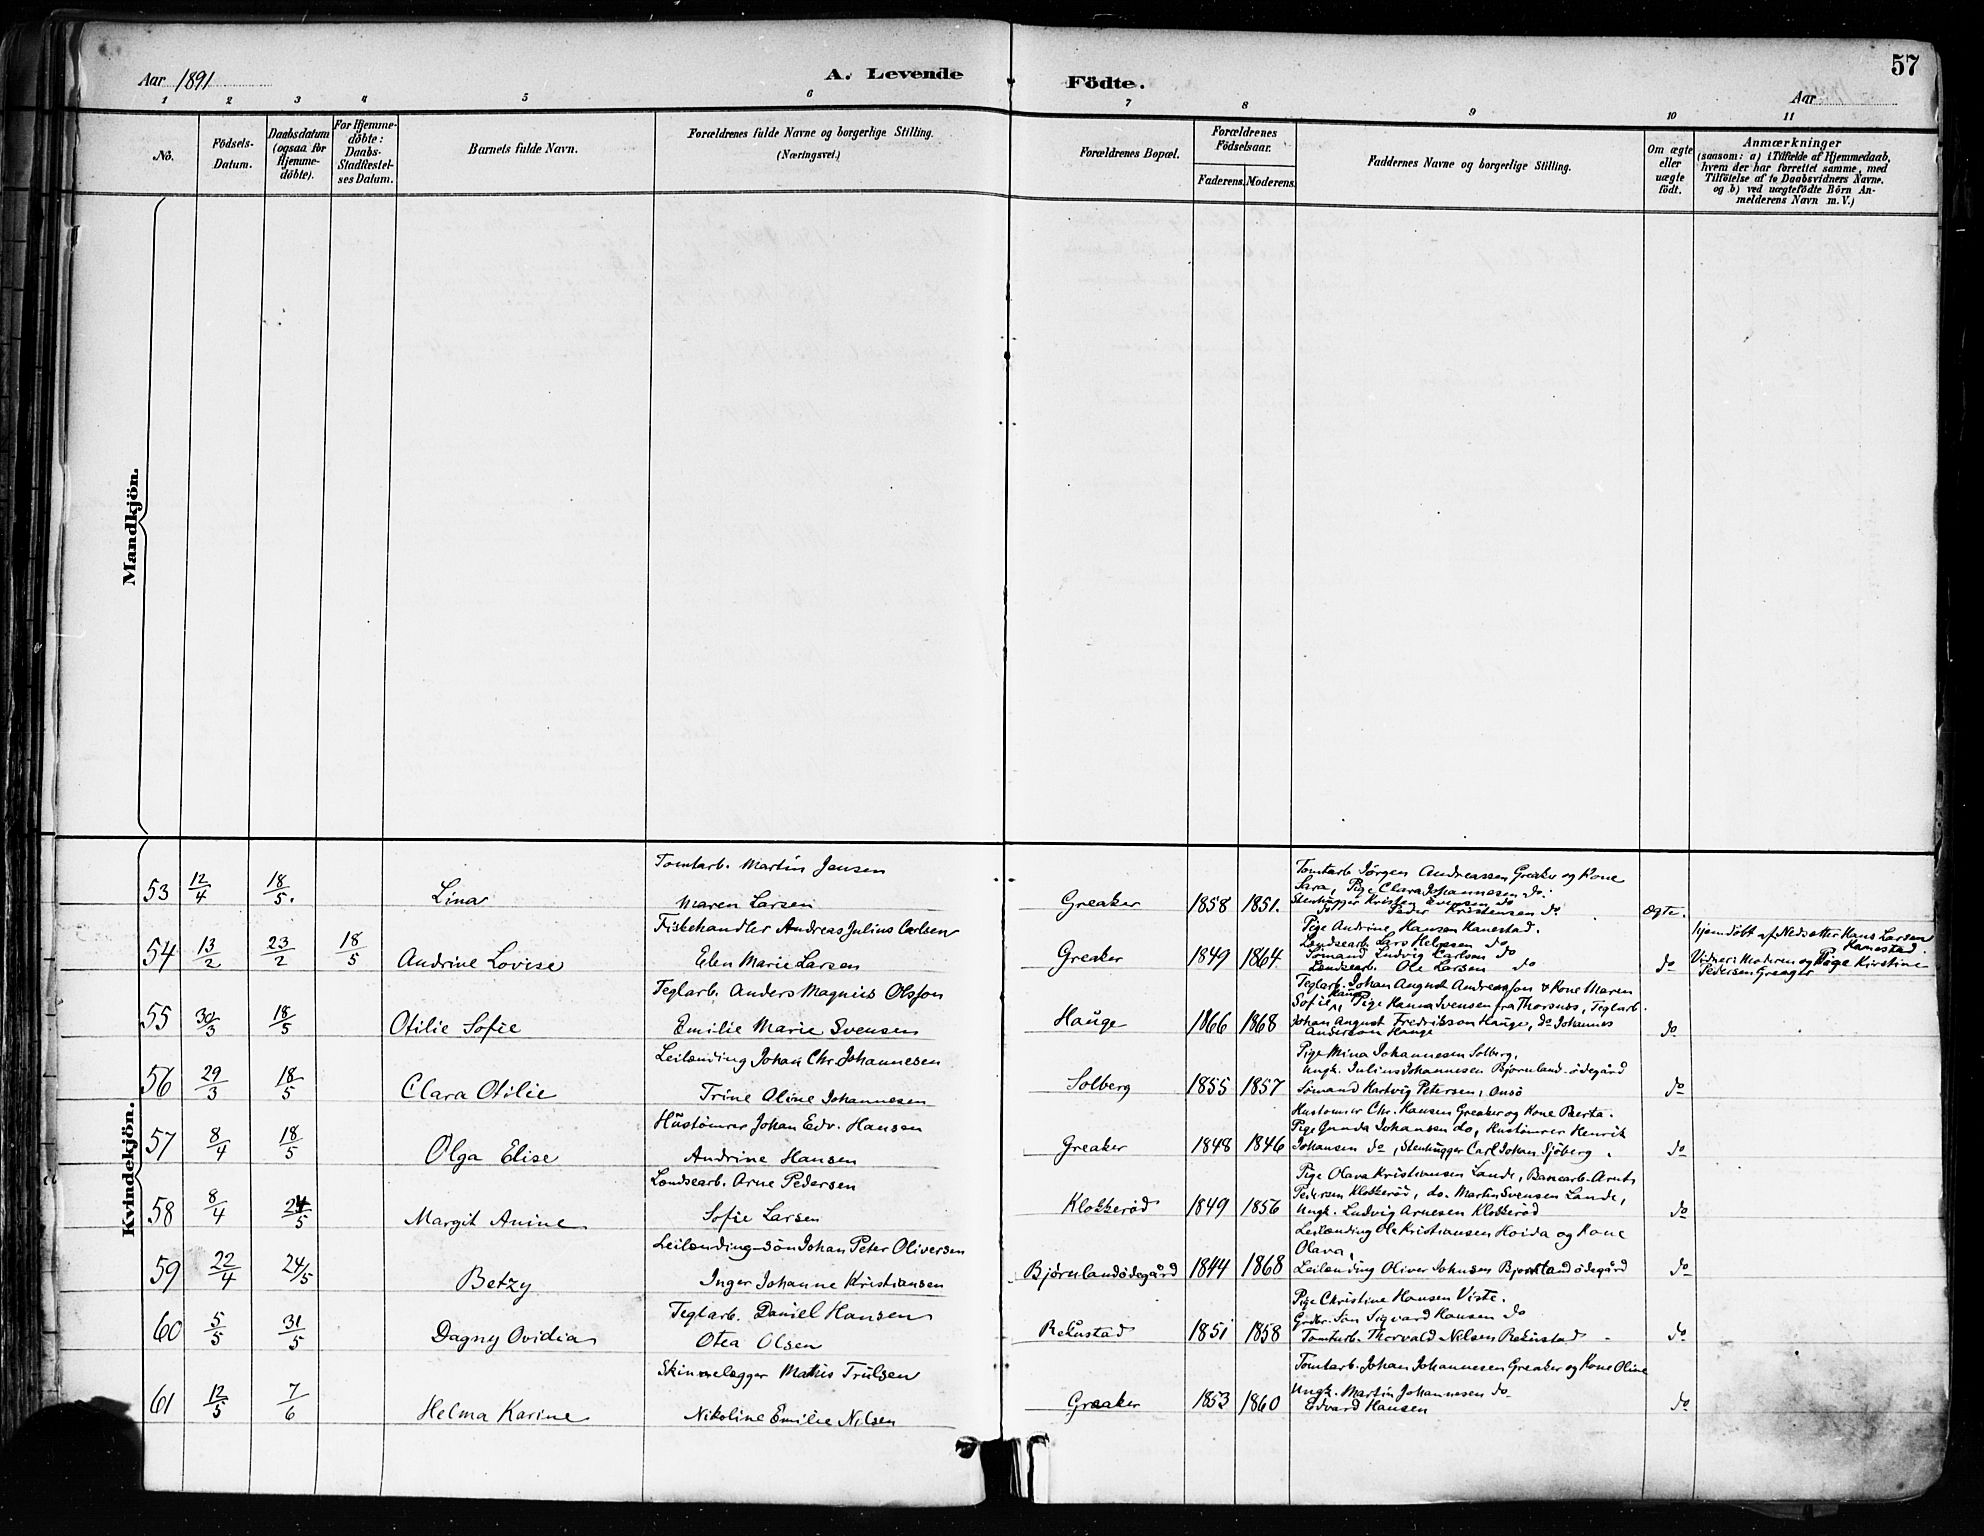 57
Aar 1891
A. Levende
Födte.
Aar
1 2 3 4 5 6 7 8 9 10 11
No.
Födsels-Datum.
Daabsdatum (ogsaa for Hjemmedöbte).
For Hjemmedöbte: Daabs-Stadfæstelses Datum.
Barnets fulde Navn.
Forældrenes fulde Navne og borgerlige Stilling. (Næringsvei.)
Forældrenes Bopæl.
Forældrenes Födselsaar.
Faderens. Moderens.
Faddernes Navne og borgerlige Stilling.
Om ægte eller uægte födt.
Anmærkninger
(saasom: a) i Tilfælde af Hjemmedaab,
hvem der har forrettet samme, med
Tilföielse af to Daabsvidners Navne.
og b) ved uægtefödte Börn Anmelderens Navn m.V.)
Mandkjön.
Kvindekjön.
53 12/4 18/5. Lina
Tomtarb. Martin Jensen
Maren Larsen
Greaker 1858 1851.
Tomtarb Jörgen Andreassen Greaker og Kone
Sara, Pige Clara Johannesen do.
Stenhugger Kristen Evensen do
Peder Kristensen do
Ægte.
54 13/2 23/2 18/5 Andrine Lovise
Fiskehandler Andreas Julius Carlsen
Elen Marie Larsen
Greaker 1849 1864
Pige Andrine Hansen Hanestad.
Landsearb Lars Helgesen do
Sömand Ludvig Carlson do
Landsearb. Ole Larsen do
do
hjemdöbt af Hans Larsen
Hanestad.
Vidner: Moderen og Pige Kirstine
Pedersen Greager
55 30/3 18/5 Otilie Sofie
Teglarb. Anders Magnus Olsson
Emilie Marie Svensen
Hauge 1866 1868
Teglarb. Johan August Andreasson & Kone Maren
Sofie Hauge, Pige Hanna Svensen fra Thorsnes, Teglarb.
Johan August Fredrikson Hauge, do Johannes
Anderson Hauge
do
56 29/3 18/5 Clara Otilie
Leilænding Johan Chr. Johannesen
Trine Oline Johannesen
Solberg 1855 1857
Pige Mina Johannesen Solberg,
Ungk. Julius Johannesen Bjørnland-ödegård
Sömand Hartvig Petersen, Onsö
do
57 8/4 18/5 Olga Elise
Hustömrer Johan Edv. Hansen
Andrine Hansen
Greaker 1848 1846
Hustömrer Chr. Hansen Greaker og Kone Berta.
Pige Gunda Johansen do, Hustömrer Henrik
Johansen do, Stenhugger Carl Johan Sjöberg
do
58 8/4 24/5 Margit Anine
Landsearb. Arne Pedersen
Sofie Larsen
Klokkerød 1849 1856
Pige Olava Kristiansen Lande, Banearb. Arnt
Pedersen Klokkeröd, do. Martin Svensen Lande,
Ungk. Ludvig Arnesen Klokkeröd
do
59 22/4 24/5 Betzy
Leilænding-sön Johan Peter Oliversen
Inger Johanne Kristiansen
Bjørnlandödegård 1844 1868
Leilænding Ole Kristiansen Hoida og Kone
Olava,
Leilænding Oliver Johnsen Bjørnlandödegård
do
60 5/5 31/5 Dagny Ovidia
Teglarb. Daniel Hansen
Otea Olsen
Rekustad 1851 1858
Pige Christine Hansen Viste.
Grdbr. Sön Sigvard Hansen do
Tomtarb. Thorvald Nilsen Rekustad
do
61 12/5 7/6 Helma Karine
Skinnelægger Mathis Trulsen
Nikoline Emilie Nilsen
Greaker 1853 1860
Tomtarb. Johan Johannesen Greaker og Kone Oline
Ungk. Martin Johannesen do
Edvard Hansen
do